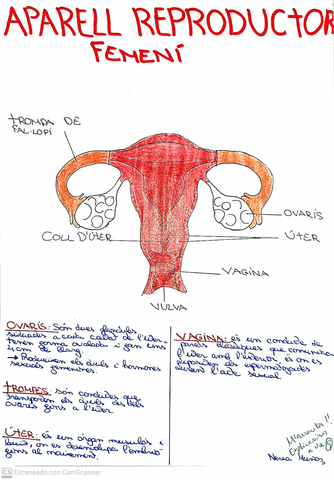 APARELL REPRODUCTOR
FEMENÍ
TROMPA DE
FAL·LOPI
OVARIS
COLL D'ÚTER
ÚTER
VAGINA
VULVA
OVARIS: Són dues glàndules
situades a cada costat de l'úter.
tenen forma ovalada i fan uns
4cm de llarg.
→ Produeixen els òvuls i hormones
sexuals femenines.
TROMPES: són conductes que
transporten els òvuls des dels
ovaris fins a l'úter
ÚTER: és un òrgan musculós i
buit, on es desenvolupa l'embrió
fins al naixement.
VAGINA: és un conducte de
parets elàstiques que comunica
l'úter amb l'exterior, és on es
dipositen els espermatozoides
durant l'acte sexual
Explicació
Nerea
CS Escaneado con CamScanner